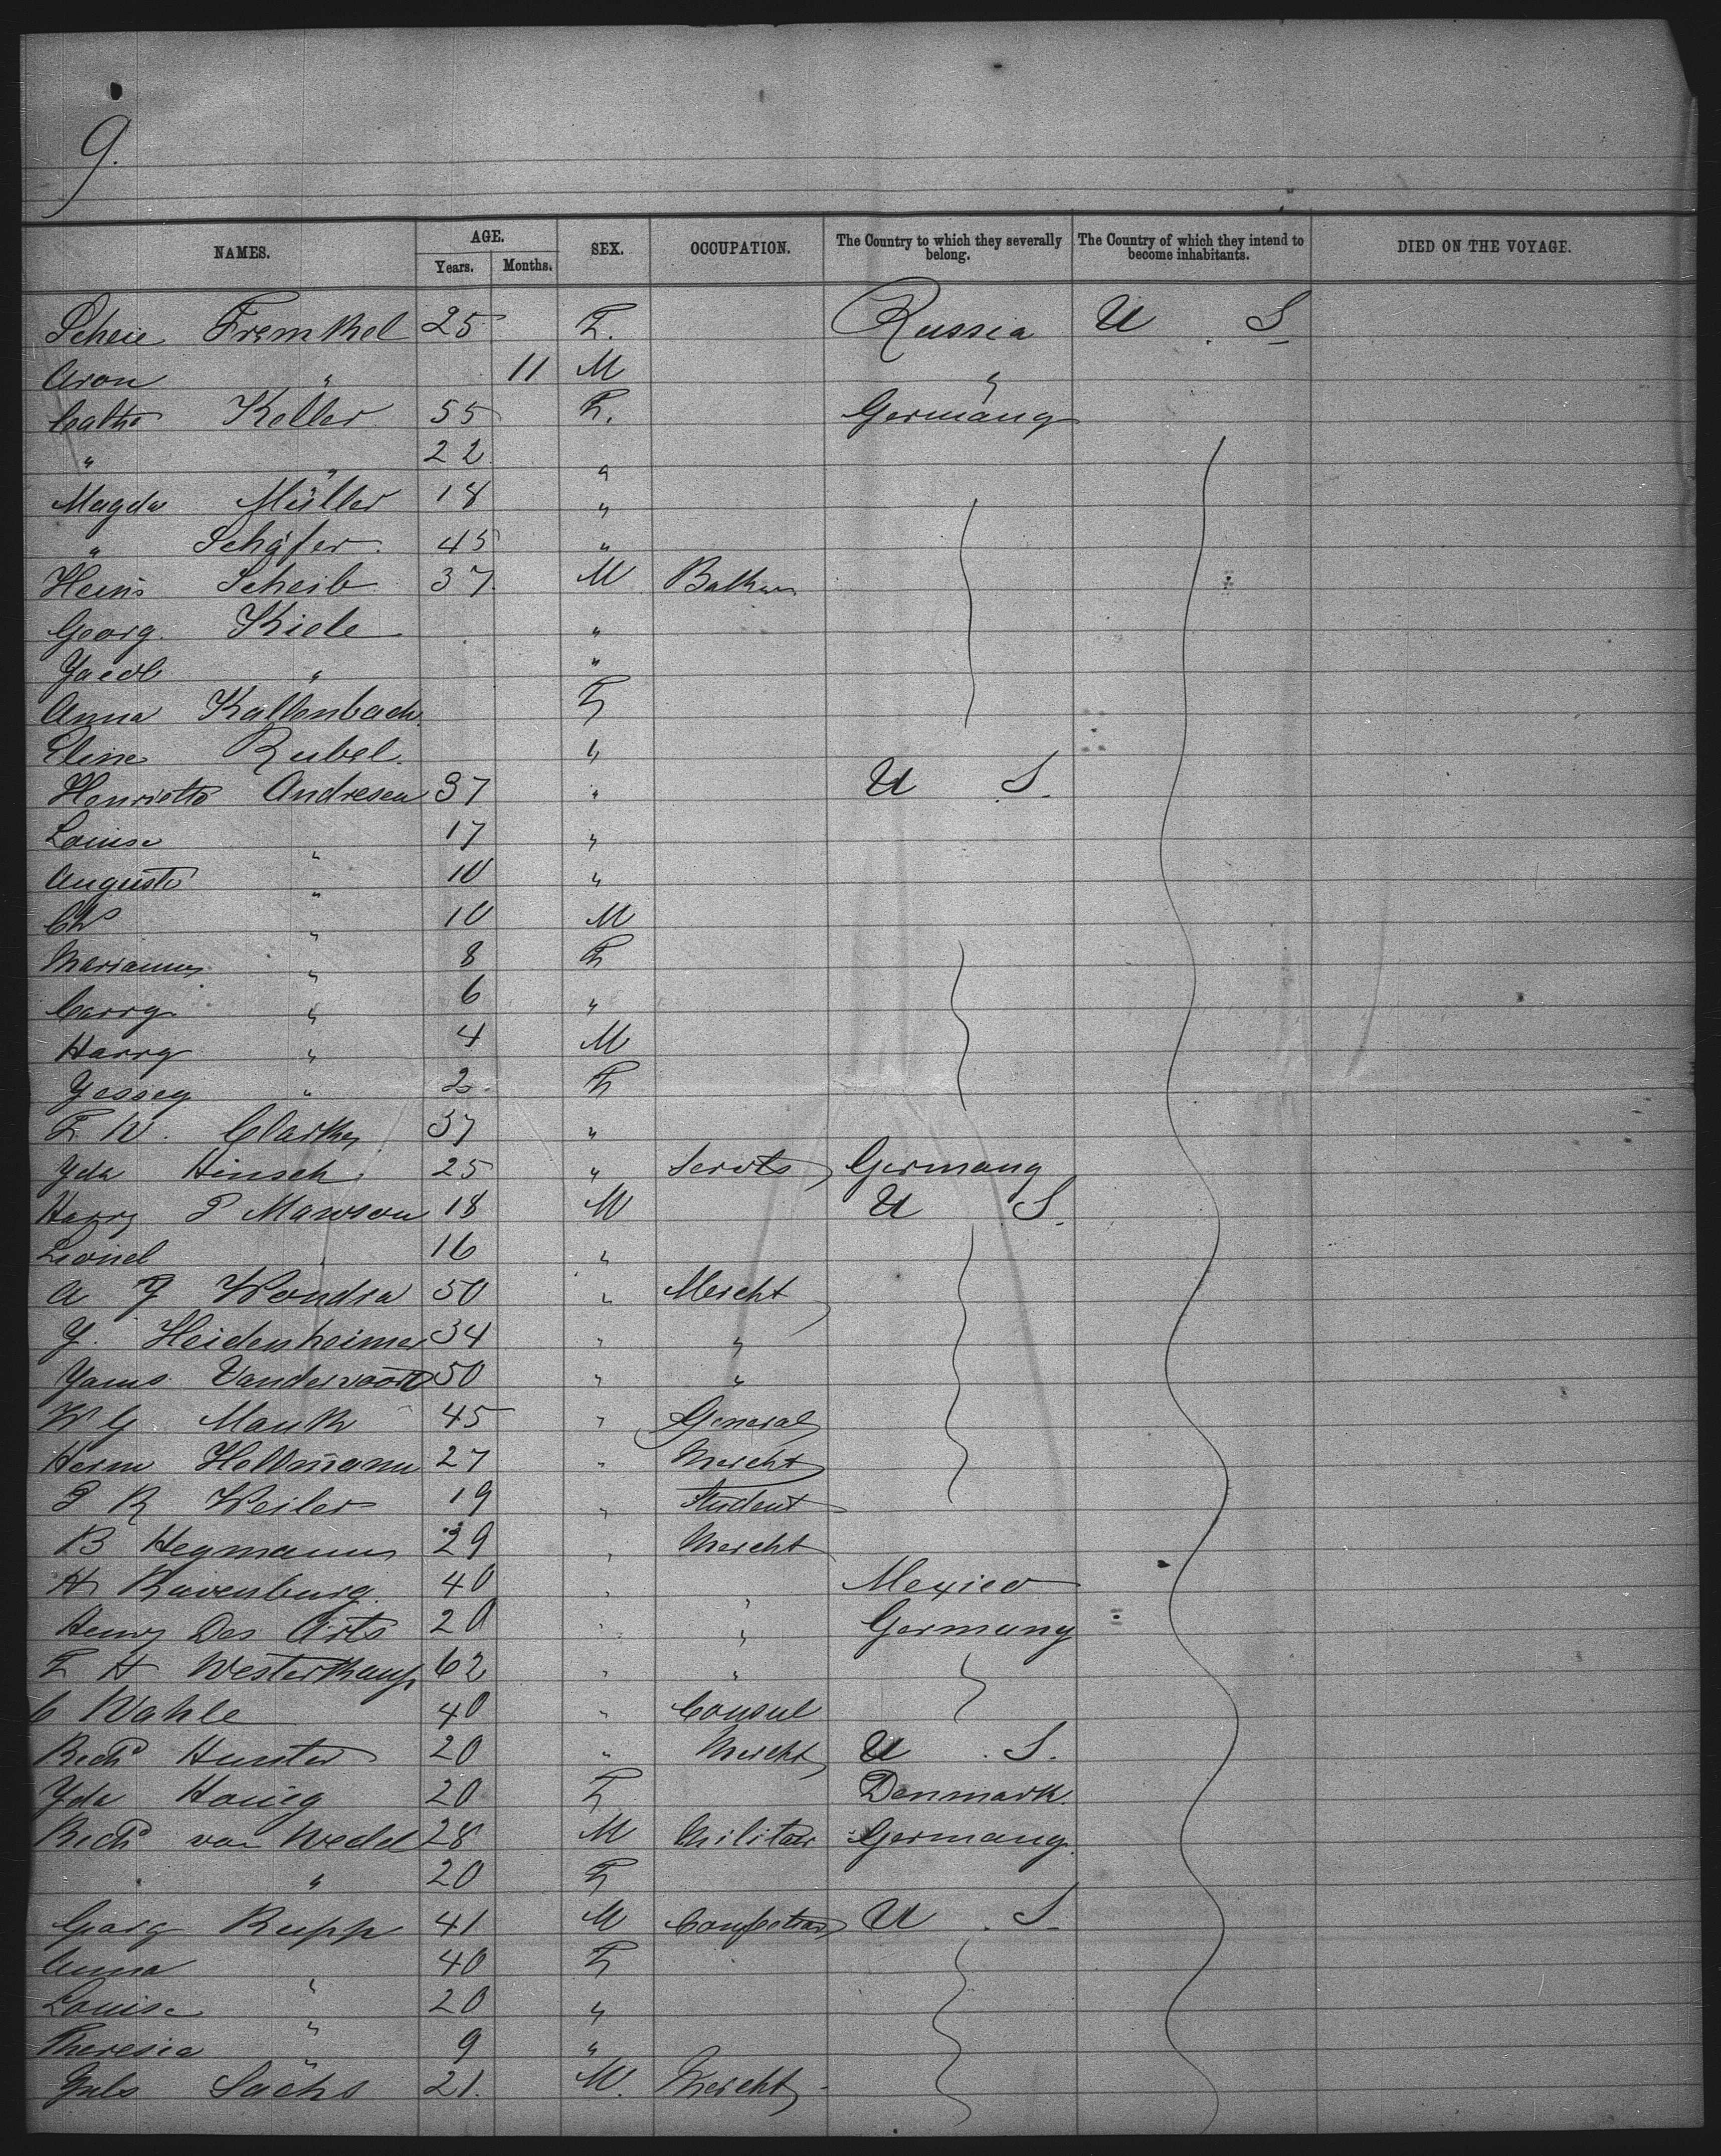 9.
NAMES. AGE. Years. Months. SEX. OCCUPATION. The Country to which they severally belong. The Country of which they intend to become inhabitants. DIED ON THE VOYAGE.
Scheie Fremkel 25 F. Russia U S
Aron " 11 M "
Cathe Keller 55 F. Germany
" " 22 "
Magda Müller 18 "
" Schäfer 45 "
Heinr Scheib 37 M
Georg Kiele "
Jacob " "
Anna Kaltenbach F
Eline Rubel "
Henriette Andresen 37 " U S.
Louise " 17 "
Auguste " 10 "
Ch " 10 M
Marianne " 8 F
Carry " 6 "
Harry " 4 M
Jessey " 2 F
F W. Clarke 37 "
Ida Hinsch 25 " Servts Germany
Harry P Mawson 18 M U S.
Lionel " 16 "
A J Wendra 50 " Mercht
J. Heidenheimer 34 " "
James Vandervoort 50 " "
W G Mank 45 " General
Herm Hellmann 27 " Mercht
P R Weiler 19 " Student
B Hegmann 29 " Mercht
H Ravenburg 40 " " Mexico
Henry Des Arts 20 " " Germany
F H Westerkamp 62 " "
C Wahle 40 " Consul
Rich<sup>d</sup> Hunter 20 " Mercht U S.
Ida Honig 20 F Denmark.
Rich<sup>d</sup> von Wedel 28 M Militair Germany.
" 20 F
Georg Rupp 41 M U S.
Anna " 40 F
Louise " 20 "
Theresia " 9 "
Juls Sachs 21. M. Mercht